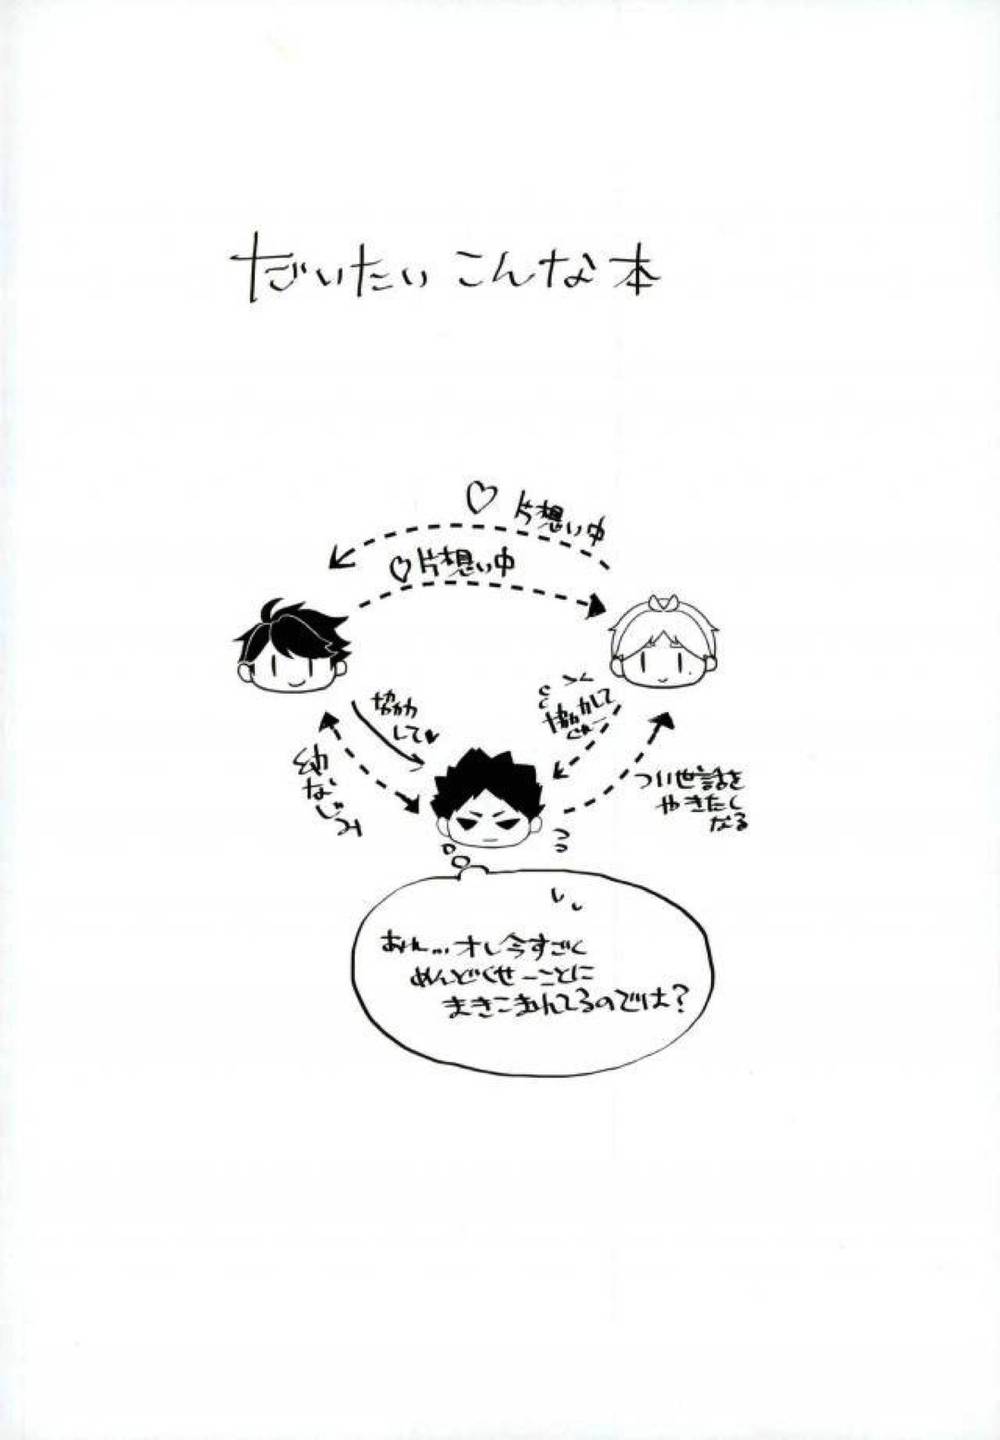 だいたいこんな本
♡片想い中
♡片想い中
協力
して♥
協力して
幼なじみ
つい世話を
やきたく
なる
あれ…オレ今すごく
めんどくせーことに
まきこまれてるのでは?